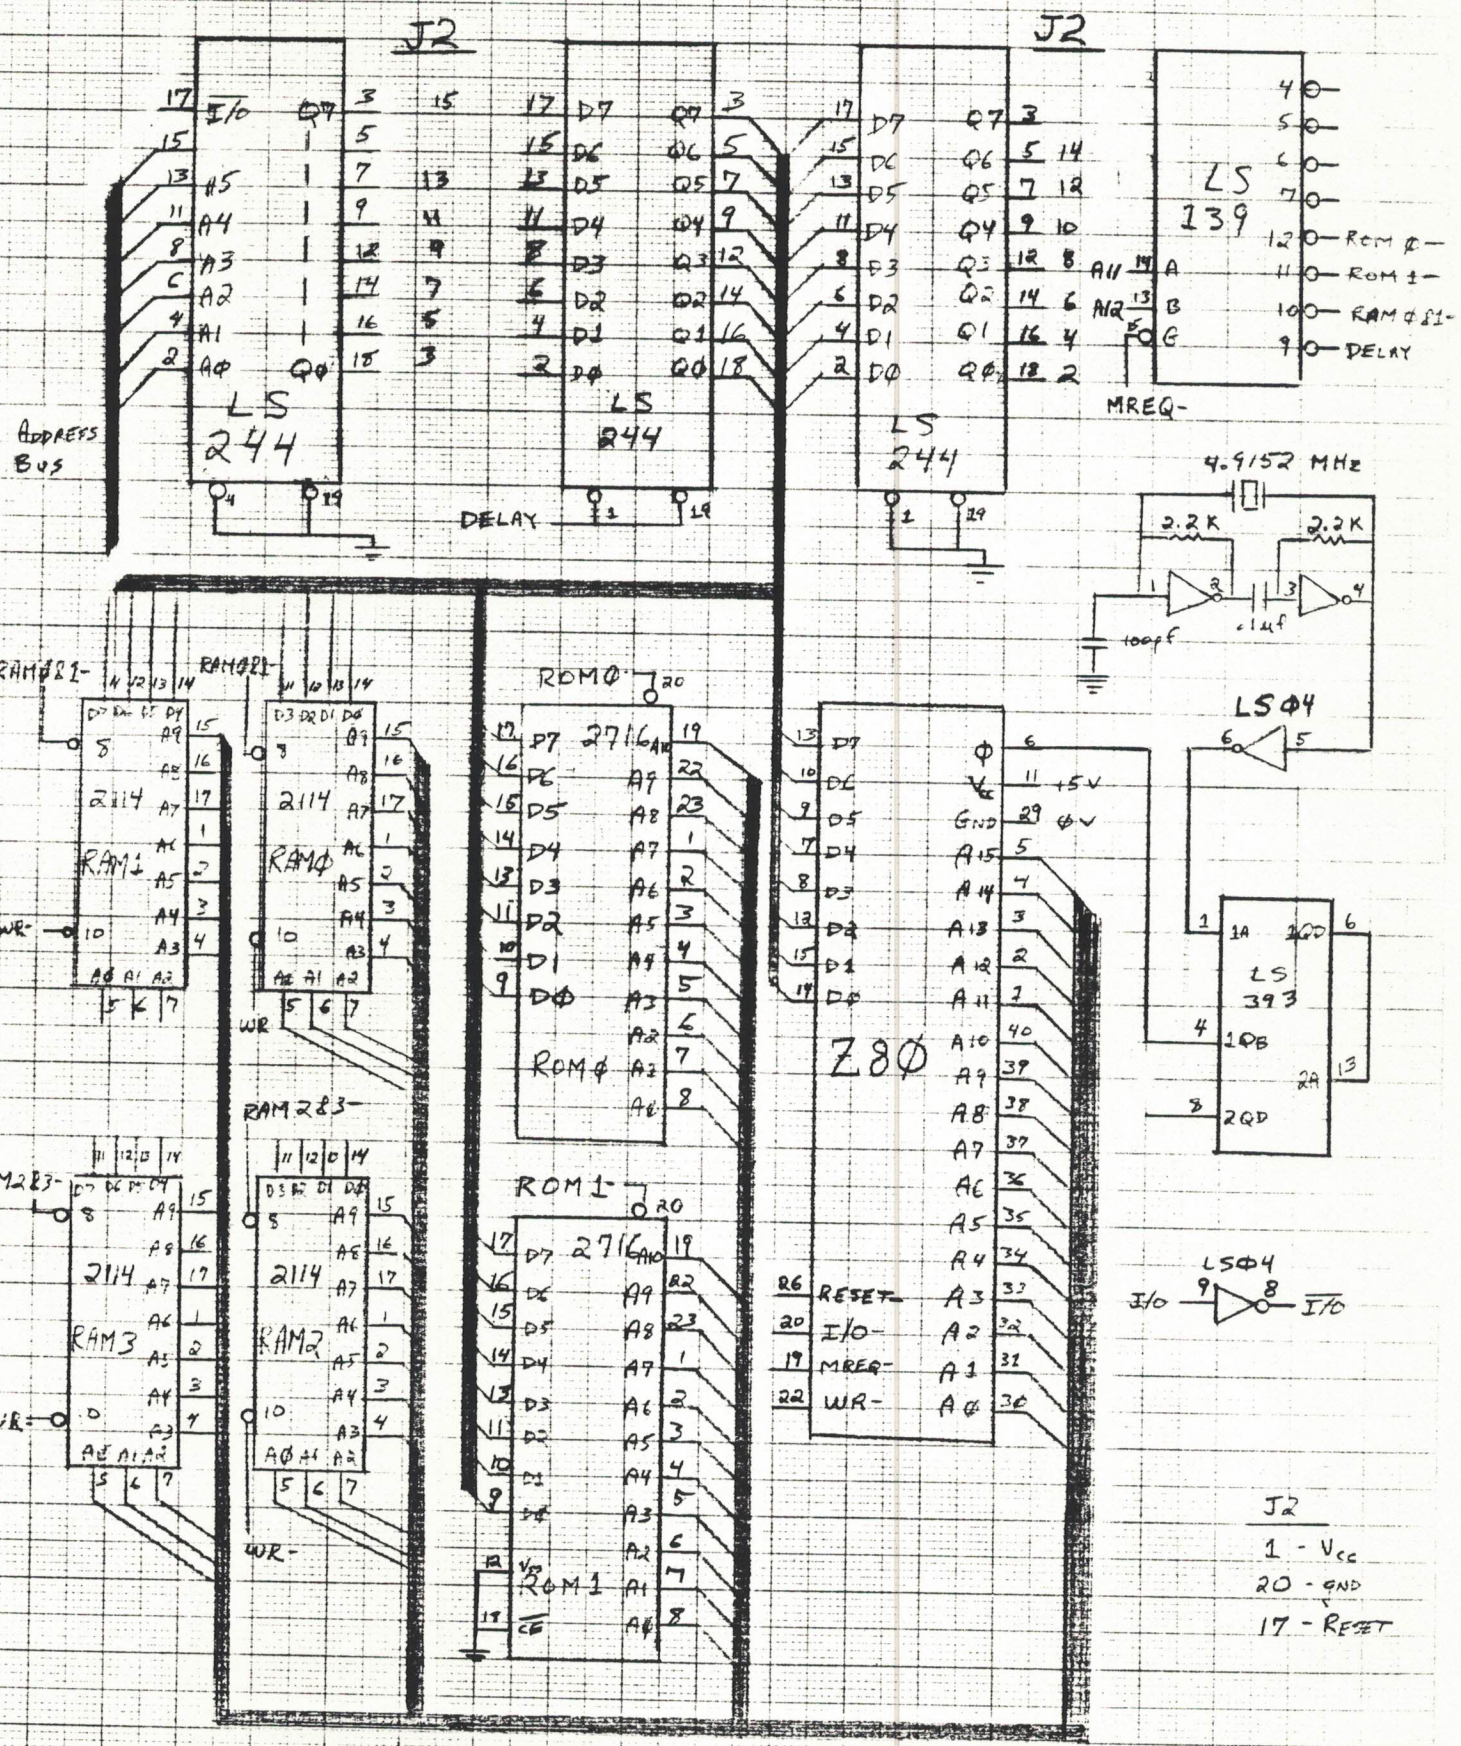 J2
J2
17 I/O Q7 3 15
15 5
13 A5 7 13
11 A4 9 11
8 A3 12 9
6 A2 14 7
4 A1 16 5
2 A0 Q0 18 3
LS
244
19
ADDRESS
BUS
17 D7 Q7 3
15 D6 Q6 5
13 D5 Q5 7
11 D4 Q4 9
8 D3 Q3 12
6 D2 Q2 14
4 D1 Q1 16
2 D0 Q0 18
LS
244
DELAY 1 19
17 D7 Q7 3
15 D6 Q6 5 14
13 D5 Q5 7 12
11 D4 Q4 9 10
8 D3 Q3 12 8
6 D2 Q2 14 6
4 D1 Q1 16 4
2 D0 Q0 18 2
LS
244
1 19
4
5
6
7
LS
139
12 ROM 0-
A11 14 A 11 ROM 1-
A12 13 B 10 RAM 0&1-
15 G 9 DELAY
MREQ-
4.9152 MHz
2.2K 2.2K
1 2 3 4
100pf .1uf
LS04
6 5
RAM0&1-
11 12 13 14
D7 D6 D5 D4
8 A9 15
A8 16
2114 A7 17
A6 1
RAM1 A5 2
A4 3
WR- 10 A3 4
A0 A1 A2
5 6 7
RAM0&1-
11 12 13 14
D3 D2 D1 D0
8 A9 15
A8 16
2114 A7 17
RAM0 A6 1
A5 2
A4 3
10 A3 4
A0 A1 A2
WR 5 6 7
ROM0- 20
17 D7 2716 A10 19
16 D6 A9 22
15 D5 A8 23
14 D4 A7 1
13 D3 A6 2
11 D2 A5 3
10 D1 A4 4
9 D0 A3 5
A2 6
ROM0 A1 7
A0 8
13 D7 Φ 6
10 D6 Vcc 11 +5V
9 D5 GND 29 0V
7 D4 A15 5
8 D3 A14 4
12 D2 A13 3
15 D1 A12 2
14 D0 A11 1
Z80 A10 40
A9 39
A8 38
A7 37
A6 36
A5 35
A4 34
26 RESET- A3 33
20 I/O- A2 32
19 MREQ- A1 31
22 WR- A0 30
1 1A 1QD 6
LS
393
4 1QB
2A 13
8 2QD
RAM2&3-
11 12 13 14
D7 D6 D5 D4
8 A9 15
A8 16
2114 A7 17
A6 1
RAM3 A5 2
A4 3
A3 4
A0 A1 A2
5 6 7
RAM2&3-
11 12 13 14
D3 D2 D1 D0
8 A9 15
A8 16
2114 A7 17
A6 1
RAM2 A5 2
A4 3
10 A3 4
A0 A1 A2
5 6 7
WR-
ROM1- 20
17 D7 2716 A10 19
16 D6 A9 22
15 D5 A8 23
14 D4 A7 1
13 D3 A6 2
11 D2 A5 3
10 D1 A4 4
9 D0 A3 5
A2 6
12
ROM1 A1 7
18 CE A0 8
LS04
I/O 9 8 I/O
J2
1 - Vcc
20 - GND
17 - RESET